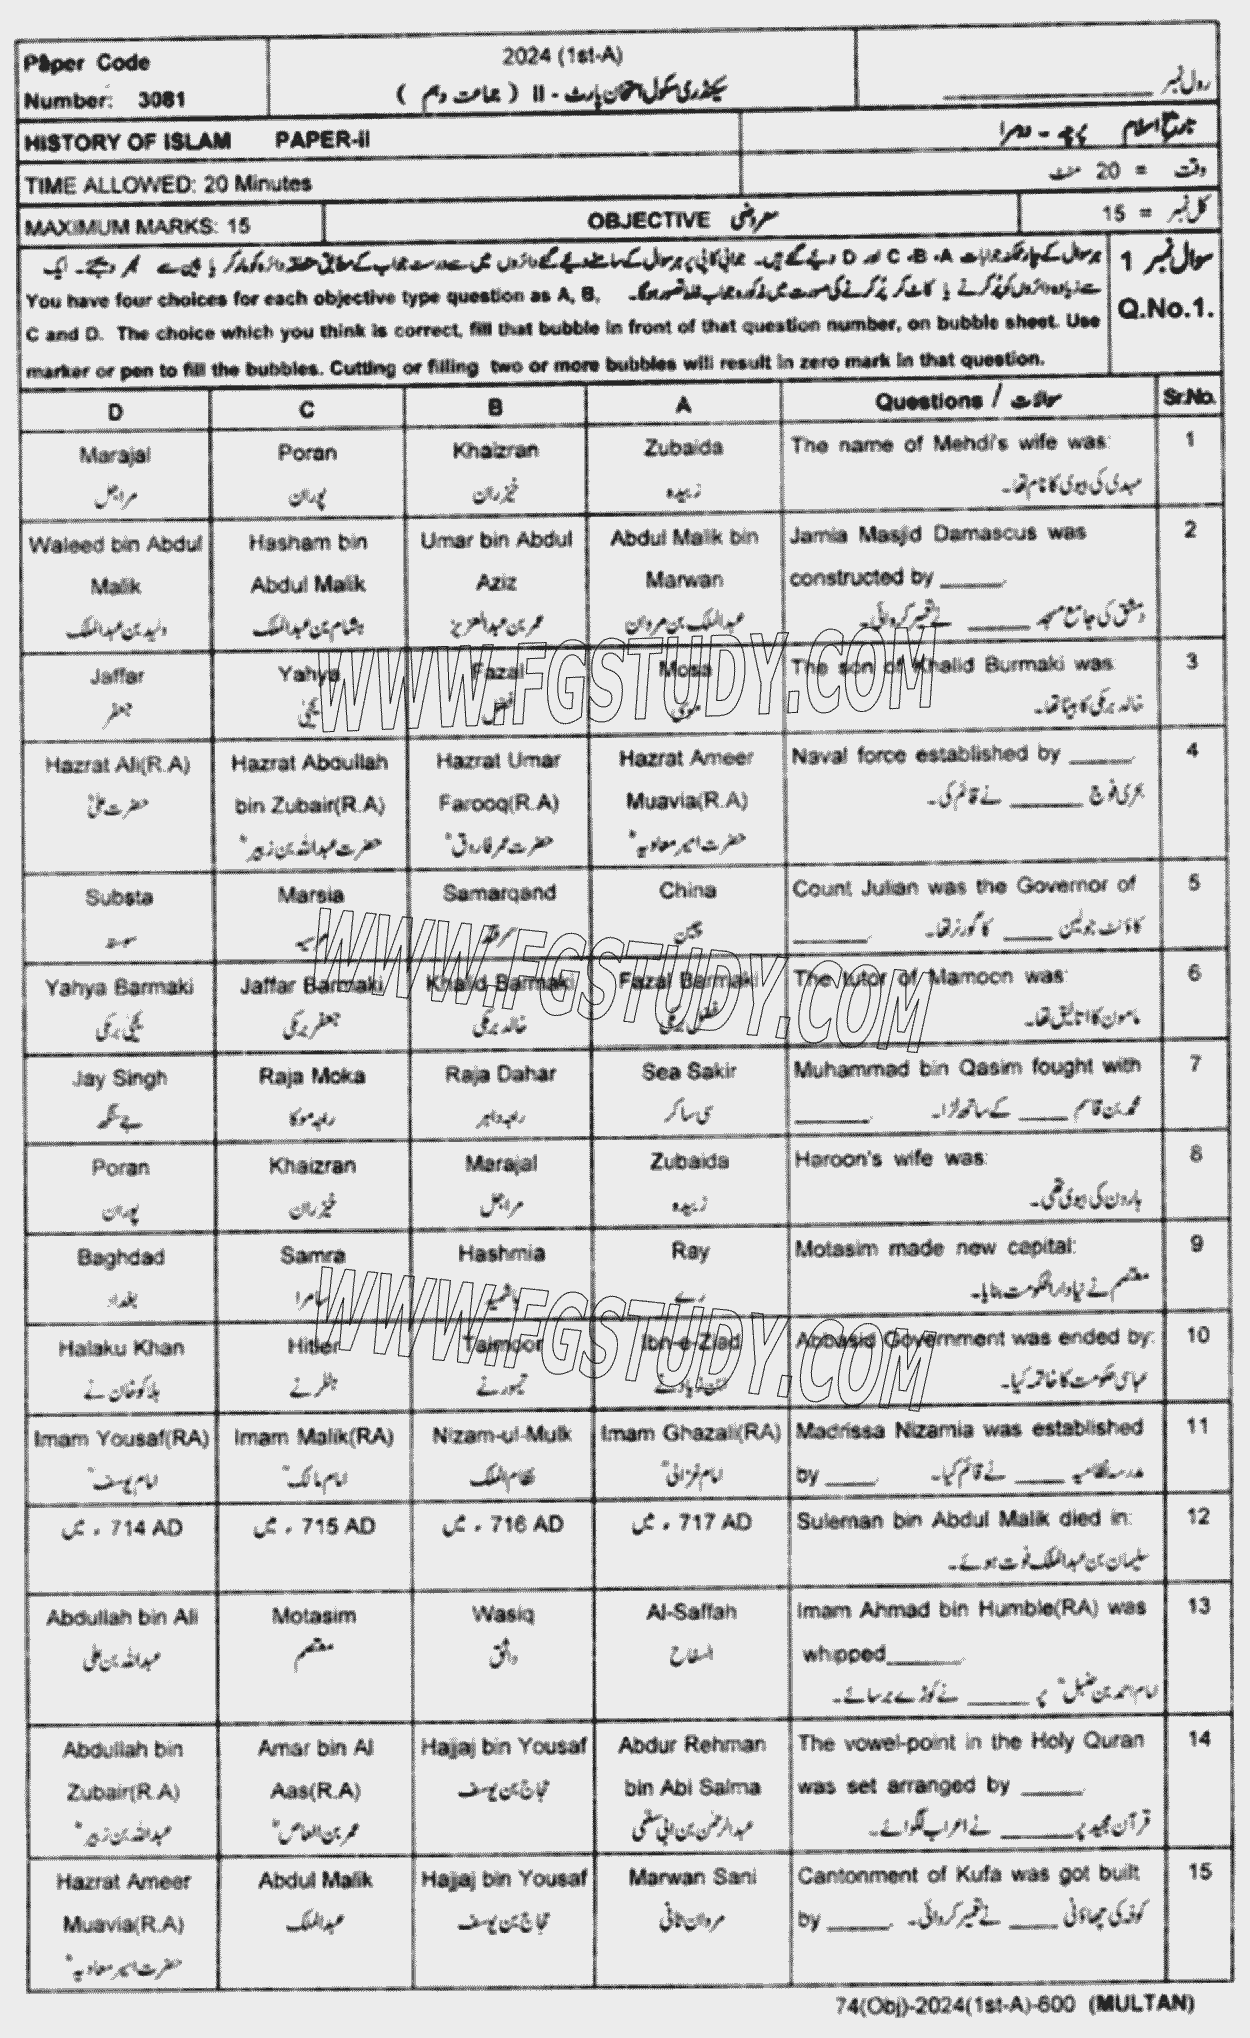 Paper Code
Number: 3081
2024 (1st-A)
سیکنڈری سکول امتحان پارٹ - II ( جماعت دہم )
رول نمبر
HISTORY OF ISLAM PAPER-II
تاریخ اسلام پرچہ - دوسرا
TIME ALLOWED: 20 Minutes
وقت = 20 منٹ
MAXIMUM MARKS: 15
OBJECTIVE معروضی
کل نمبر = 15
سوال نمبر 1
Q.No.1.
You have four choices for each objective type question as A, B,
C and D. The choice which you think is correct, fill that bubble in front of that question number, on bubble sheet. Use
marker or pen to fill the bubbles. Cutting or filling two or more bubbles will result in zero mark in that question.
D C B A Questions / سوالات Sr.No.
Marajal Poran Khaizran Zubaida The name of Mehdi's wife was: 1
مراجل پوران خیزران زبیدہ مہدی کی بیوی کا نام تھا۔
Waleed bin Abdul Hasham bin Umar bin Abdul Abdul Malik bin Jamia Masjid Damascus was 2
Malik Abdul Malik Aziz Marwan constructed by ______.
ولید بن عبدالملک ہشام بن عبدالملک عمر بن عبدالعزیز عبدالملک بن مروان دمشق کی جامع مسجد ______ نے تعمیر کروائی۔
Jaffar Yahya Fazal Mosa The son of Khalid Burmaki was: 3
جعفر یحییٰ فضل موسیٰ خالد برمکی کا بیٹا تھا۔
Hazrat Ali(R.A) Hazrat Abdullah Hazrat Umar Hazrat Ameer Naval force established by ______. 4
bin Zubair(R.A) Farooq(R.A) Muavia(R.A)
حضرت علیؓ حضرت عبداللہ بن زبیرؓ حضرت عمر فاروقؓ حضرت امیر معاویہؓ بحری فوج ______ نے قائم کی۔
Substa Marsia Samarqand China Count Julian was the Governor of 5
سمرقند چین کاؤنٹ جولین ____ کا گورنر تھا۔ ______.
Yahya Barmaki Jaffar Barmaki Khalid Barmaki Fazal Barmaki The tutor of Mamoon was: 6
یحییٰ برمکی جعفر برمکی خالد برمکی فضل برمکی مامون کا اتالیق تھا۔
Jay Singh Raja Moka Raja Dahar Sea Sakir Muhammad bin Qasim fought with 7
جے سنگھ راجہ موکا راجہ داہر سی ساکر محمد بن قاسم ____ کے ساتھ لڑا۔ ______.
Poran Khaizran Marajal Zubaida Haroon's wife was: 8
پوران خیزران مراجل زبیدہ ہارون کی بیوی تھی۔
Baghdad Samra Hashmia Ray Motasim made new capital: 9
بغداد سامرا ہاشمیہ رے معتصم نے نیا دارالحکومت بنایا۔
Halaku Khan Hitler Taimoor Ibn-e-Ziad Abbasid Government was ended by: 10
ہلاکو خان نے ہٹلر نے تیمور نے ابن زیاد نے عباسی حکومت کا خاتمہ کیا۔
Imam Yousaf(RA) Imam Malik(RA) Nizam-ul-Mulk Imam Ghazali(RA) Madrissa Nizamia was established 11
امام یوسفؒ امام مالکؒ نظام الملک امام غزالیؒ مدرسہ نظامیہ ____ نے قائم کیا۔ by ____.
714 AD ء میں 715 AD ء میں 716 AD ء میں 717 AD ء میں Suleman bin Abdul Malik died in: 12
سلیمان بن عبدالملک فوت ہوئے۔
Abdullah bin Ali Motasim Wasiq Al-Saffah Imam Ahmad bin Humble(RA) was 13
whipped______.
عبداللہ بن علی معتصم واثق السفاح امام احمد بن حنبلؒ پر _____ نے کوڑے برسائے۔
Abdullah bin Amar bin Al Hajjaj bin Yousaf Abdur Rehman The vowel-point in the Holy Quran 14
Zubair(R.A) Aas(R.A) bin Abi Salma was set arranged by _____.
عبداللہ بن زبیرؓ عمر بن العاصؓ حجاج بن یوسف عبدالرحمٰن بن ابی سلمٰی قرآن مجید پر ______ نے اعراب لگوائے۔
Hazrat Ameer Abdul Malik Hajjaj bin Yousaf Marwan Sani Cantonment of Kufa was got built 15
Muavia(R.A) by _____.
حضرت امیر معاویہؓ عبدالملک حجاج بن یوسف مروان ثانی کوفہ کی چھاؤنی ____ نے تعمیر کروائی۔
74(Obj)-2024(1st-A)-600 (MULTAN)
WWW.FGSTUDY.COM
WWW.FGSTUDY.COM
WWW.FGSTUDY.COM